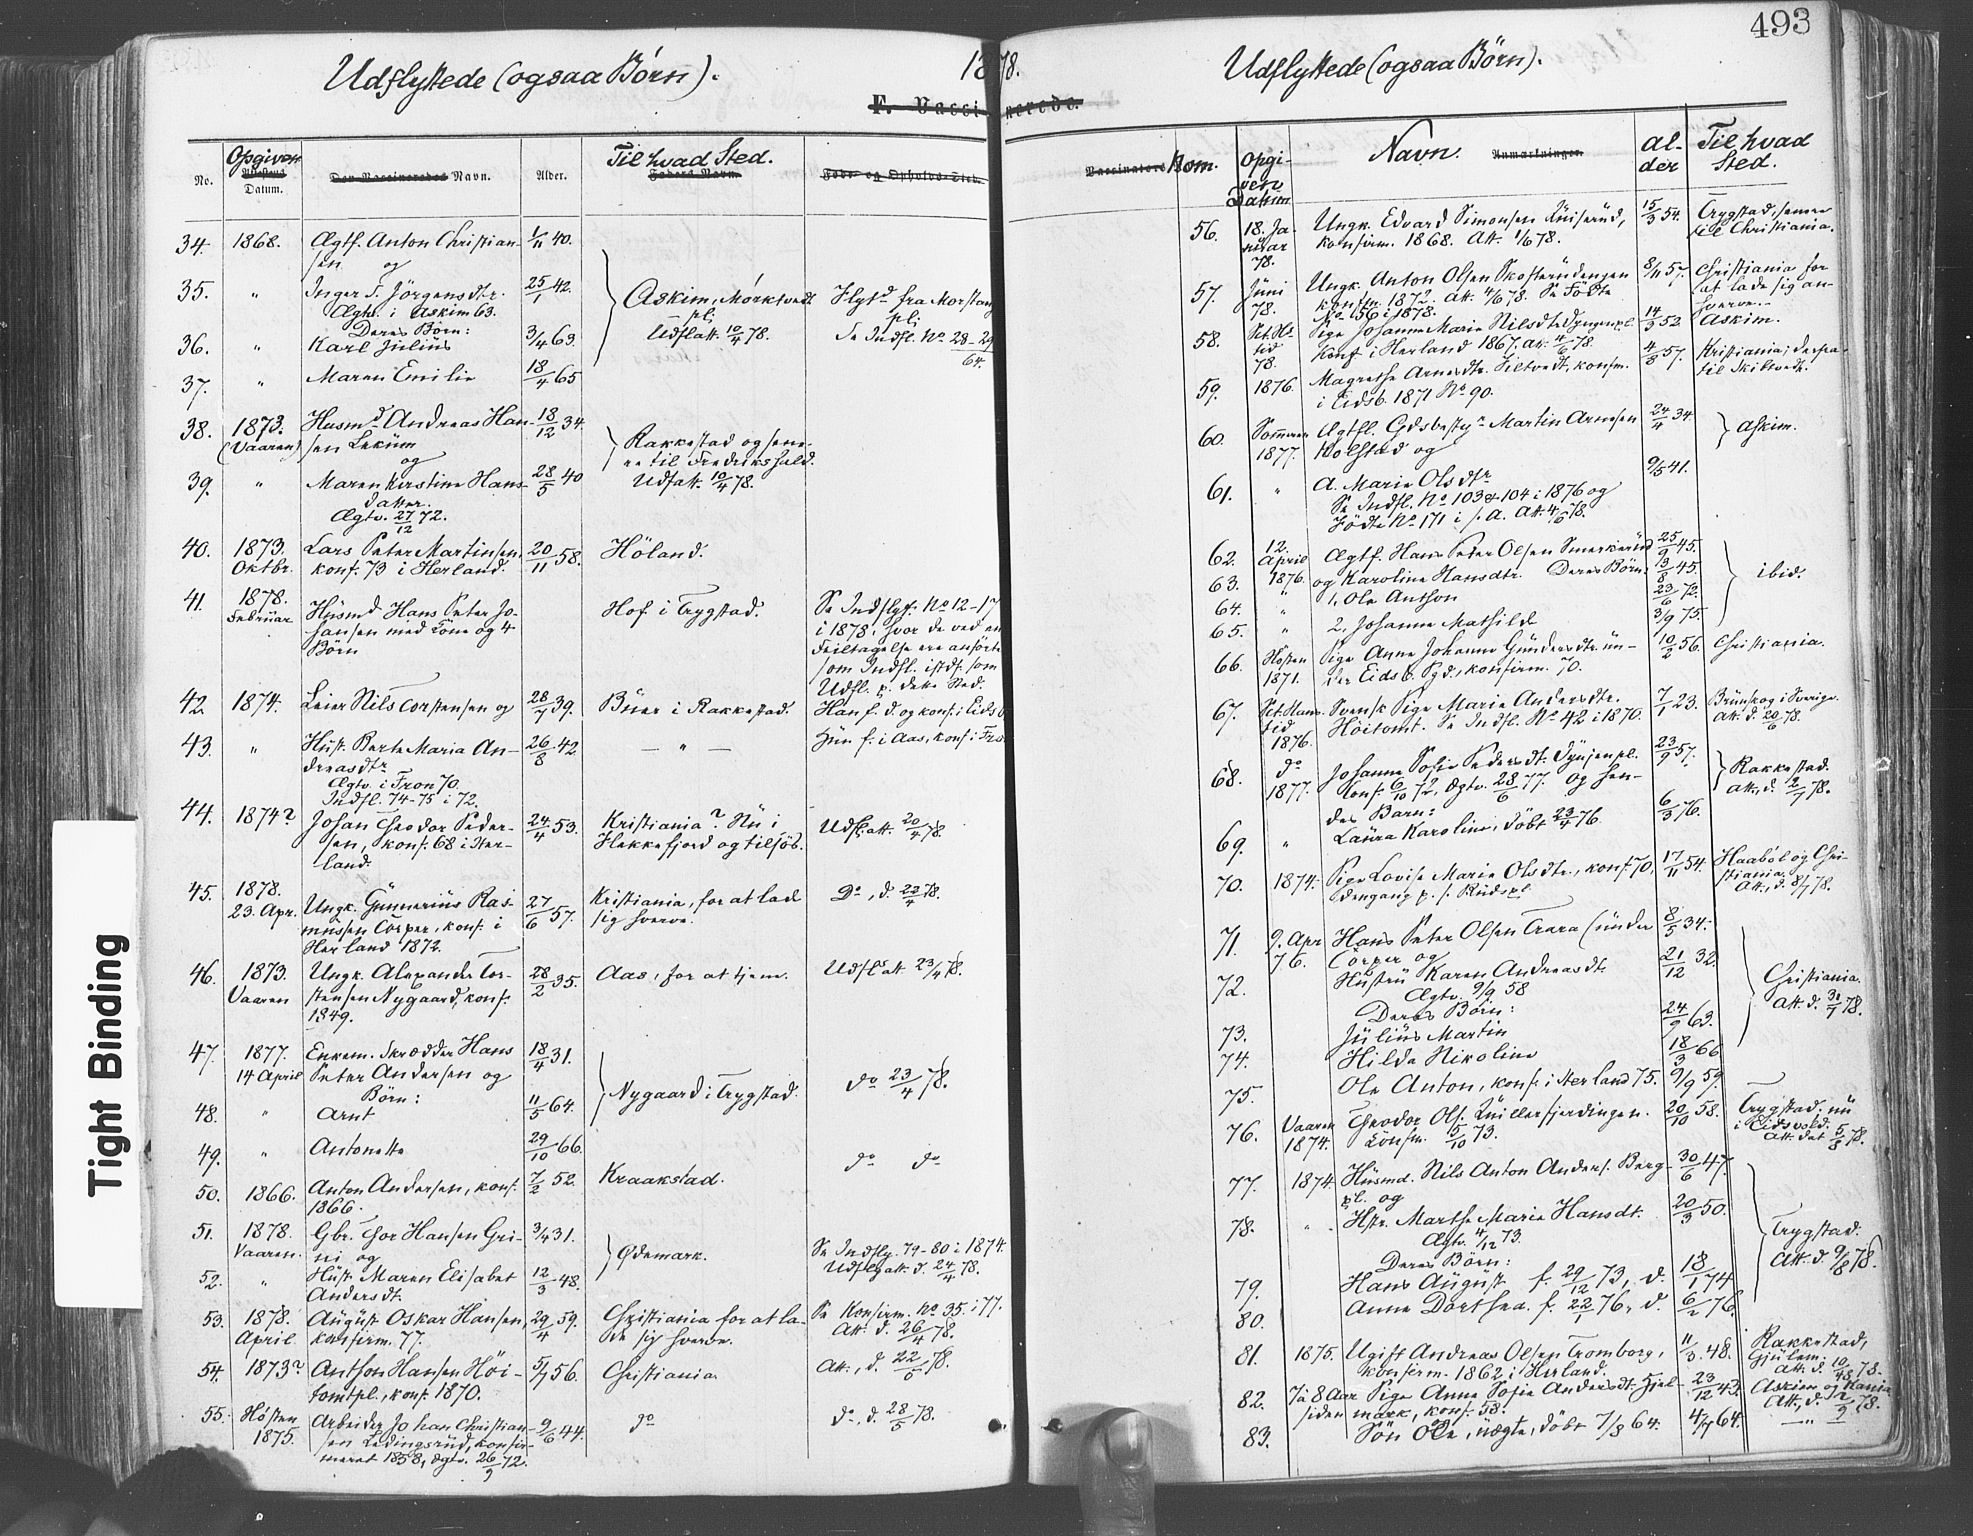 493
Udflyttede (ogsaa Børn).
1878.
Udflyttede (ogsaa Børn).
F. Vaccinerede.
No.
Opgiven
Datum.
Den Vaccineredes Navn.
Alder.
Til hvad Sted.
Faders Navn.
Føde- og Opholds-Sted.
34. 1868. Ægtf. Anton Christian- 1/11 40.
sen og
35. " Inger S. Jörgensdtr. 25/1 42. Askim, Mörktvedt Flytd fra Morstang
Ægtv. i Askim 63. pl; pl;
Deres Børn: Udflatt. 10/4 78. Se Indfl. No 28-29
36. " Karl Julius 3/4 63. 64.
37. " Maren Emilie 18/4 65
38. 1873. Husmd Andreas Han- 18/12 34.
(Vaaren) sen Lekum Rakkestad og sene-
og re til Fredrikshald.
39. " Maren Kerstine Hans- 28/5 40 Udfatt. 10/4 78.
datter.
Ægtv. 27/12 72.
40. 1873. Lars Peter Martinsen, 20/11 58. Höland.
Oktbr. konf. 73 i Herland.
41. 1878. Husmd Hans Peter Jo- Hof i Trygstad. Se Indflytt. No 12-17
Februar hansen med Kone og 4 i 1878, hvor de ved en
Børn Feiltagelse ere anførte
som Indfl. istdf. som
Udfl. p. dette Sted.
42. 1874. Leier Nils Torstensen og 28/7 39. Buer i Rakkestad. Han f. d. og konf. i Eidsb
43. " Hust. Berte Maria An- 26/8 42. — " — Hun f: i Aas, konf: i Fro
dreasdtr
Ægtv. i Tron 70.
Indfl. 74-75 i 72.
44. 1874? Johan Theodor Peder- 24/4 53. Kristiania? Nu i Udfl. att. 20/4 78.
sen, konf: 68 i Her- Flekkefjord og tilsjøs.
land.
45. 1878. Ungk. Gunnerius Ras- 27/6 57. Kristiania, for at lade Do, d. 22/4 78.
23. Apr. mussen Torper, konf: i sig hverve.
Herland 1872.
46. 1873. Ungk. Alexander Tor- 28/2 35. Aas, for at tjene. Udfls att 23/4 78.
Vaaren stensen Nygaard, konf.
1849.
47. 1877. Enkem. Skrædder Hans 18/4 31.
14 April Peter Andersen og Nygaard i Trygstad. do 23/4 78.
Børn:
48. " Arnt 11/5 64.
49. " Antonette 29/10 66. do do
50. 1866. Anton Andersen, konf: 7/2 52. Kraakstad.
1866.
51. 1878. Gbr. Thor Hansen Gri- 3/4 31. Se Indfly. 79-80 i 1874.
Vaaren. ni og Ødemark. Udflg att. d. 24/4 78.
52. " Hust. Maren Elisabet 12/3 48.
Andersdt.
53. 1878. August Oskar Hansen, 29/4 59. Christiania for at la- Se Konfirm. No 35 i 77.
April konfirm. 77. de sig hverve. Att. d. 26/4 78.
54. 1873? Anthon Hansen Höi- 5/7 56. Christiania Att., d. 22/5 78.
tomtpl., konf. 1870.
55. Høsten Arbeider Johan Christian- 9/6 44. do do, d. 28/5 78.
1875. sen Ledingsrud, konfir-
meret 1858, ægtv. 26/9 72.
Vaccinators
Nom.
Opgi-
ven
Datum
Navn.
Anmærkninger.
Al-
der
Til hvad
Sted.
56. 18. Ja- Ungk. Edvard Simonsen 15/3 54. Trygstad, senere
nuar konfirm. 1868. Att. 1/6 78. til Christiania.
78.
57. Juni Ungk. Anton Olsen 8/11 57. Christiania for
78. konfm. 1872. Att. 4/6 78. Se Födte at lade sig an-
No 156 i 1878. hverve.
58. Sct. Hs- Pige Johanne Marie Nilsdtr 14/2 52. Askim.
tid konf i Herland 1867. Att. 4/6 78.
78.
59. 1876. Magrethe Arnesdtr. Siltvedt, konfm. 4/8 57. Kristiania, derfra
i Eidsb. 1871 No 90. til Skibtvedt.
60. Sommeren Ægtfl. Gdsbestyr Martin Arnesen 24/4 34. Askim.
1877. Kolstad og
61. " A. Marie Olsdtr 9/5 41.
Se Indfl. No 103 & 104 i 1876 og
Födte No 171 i s. A. Att. 4/6 78.
62. 12. April Ægtf. Hans Peter Olsen Smerkerud 25/9 45.
63. 1876. og Karoline Hansdtr. Deres Børn: 13/8 45. ibid.
64. " 1, Ole Anthon 23/6 72.
65. " 2, Johanne Mathilde 3/9 75.
66. Høsten Pige Anne Johanne Gundersdtr un- 10/2 56. Christiania.
1871. der Eidsb. Pgd., konfirm. 70.
67. Sct. Hans- Svensk Pige Marie Andersdtr. 7/1 23. Brunskog i Sverige.
tid Höitomt. Se Indfl. No 42 i 1870. Att. d. 20/6 78.
1876.
68. do Johanne Sofie Pedersdt. 23/9 57. Rakkestad.
1877. konf. 6/10 72, ægtv. 28/6 77. og hen- Att., d. 2/7 78.
des Barn:
69. " Laura Karoline, döbt 23/4 76. 6/3 76.
70. 1874. Pige Lovise Marie Olsdtr., konf. 70, 17/11 54. Haaböl og Chri-
dengang p. s. Rudspl. stiania. Att., d. 8/7 78.
71. 9. Apr Hans Peter Olsen Trara (under 8/5 34.
76. Torper og
72. Hustru Karen Andreasdt. 21/12 32. Christiania.
Ægtv. 9/9 58 Att. d. 30/7 78.
Deres Børn:
73. Julius Martin 24/9 63.
74. Hilda Nikoline 18/3 66
75. Ole Anton, konf. i Herland 75. 9/9 59.
76. Vaaren Theodor Ols. 20/10 58. Trygstad, nu
1874. konfm. 5/10 73. i Eidsvold. Att. det 5/8 78.
77. 1874. Husmd. Nils Anton Anders. Berg- 30/6 47.
pl. og
78. " Hstr. Marthe Marie Hansdt. 20/3 50. Trygstad.
Ægtv. 4/12 73. Att. d. 9/8 78.
Deres Børn:
79. Hans August f. 29/12 73, d. 18/1 74
80. Anne Dorthea. f. 22/1 76, d. 6/2 76.
81. 1875. Ugift Andreas Olsen Tromborg, 11/3 48. Rakkestad,
konfirm. 1862 i Herland. Gjulem. Att. d. 10/8 78.
82. 7 à 8 Aar Pige Anne Sofie Andersdt. Hjel- 23/12 43. Askim og Kania
siden mark, konf. 58. Att., d. 2/9 78.
og
83. Sön Ole, uægte, döbt 7/8 64. 4/7 64. — " —
Tight Binding